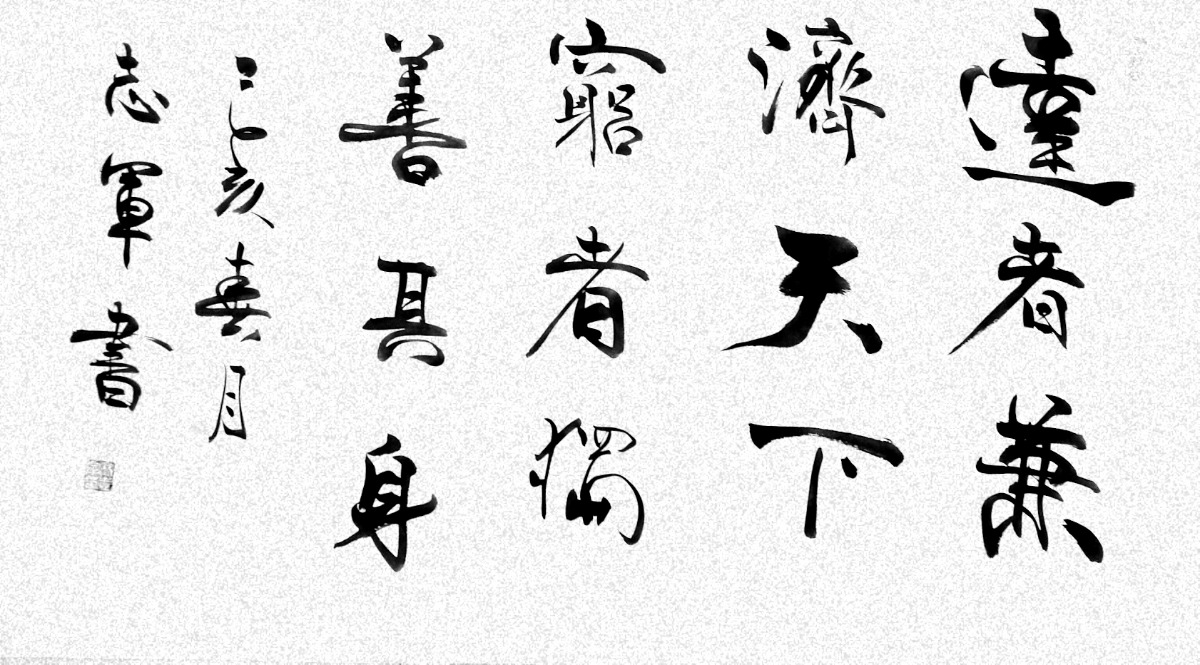 達者兼
濟天下
窮者獨
善其身
己亥春月
志軍書